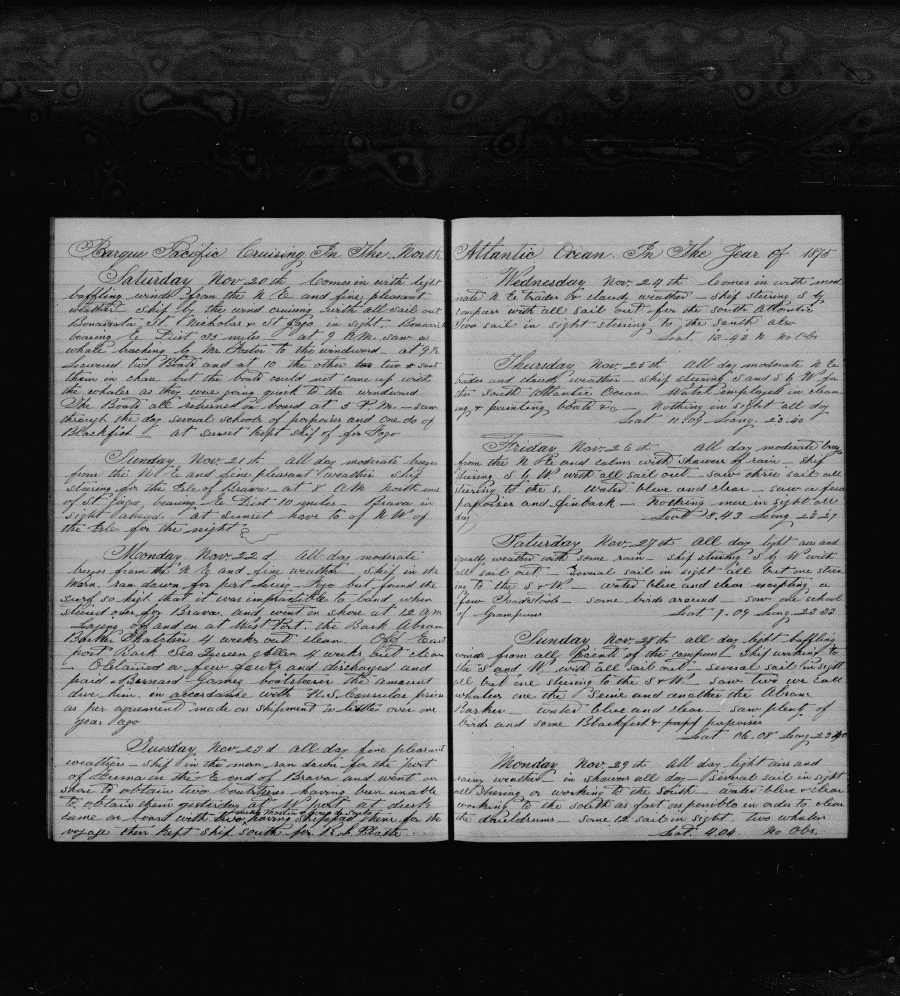 Barque Pacific Cruising In The North
Saturday Nov 20th Comes in with light
baffling winds from the N E and fine pleasant
weather Ship by the wind cruising with all sail out
Bonavista, St. Nicholas & St Jago in sight. Bonavist
bearing E Dist 35 miles at 9 A.M. saw a
whale breaching by Mr. Foster to the windward at 9
Lowered two Boats and at 10 the other two & sent
them in chase but the boats could not come up with
the whales as they were going quick to the windward
The Boats all returned on board at 3 P.M. saw
through the day several schools of porpoises and one do of
Blackfish at sunset kept ship off for Fogo
Sunday Nov. 21th all day moderate breezes
from the N E and fine pleasant weather ship
steering for the Isle of Brava at 8 AM south end
of St Jago bearing E Dist 10 miles Brava in
sight ahead at sunset hove to of N W of
the Isle for the night
Monday Nov 22d All day moderate
breezes from the N E and fine weather Ship in the
Morn. ran down for port Fogo but found the
surf so high that it was impracticable to land when
steered over for Brava and went on shore at 12 AM
Laying off and on at West Port the Bark Abram
Barker 4 weeks out clean. Off East
port Bark Sea Queen 4 weeks out clean
Obtained a few fowls and discharged and
paid Bernard Gomes boatsteerer the amount
due him in accordance with U.S. Consular price
as per agreement made on shipment a little over one
year ago
Tuesday Nov 23d all day fine pleasant
weather ship in the morn. ran down for the Port
of in the E end of Brava and went on
shore to obtain two boatsteerers having been unable
to obtain them yesterday at W Port at
came on board with two, having shipped them for the
voyage then kept ship south for
Atlantic Ocean In The Year of 1875
Wednesday Nov. 24th Comes in with mod
erate N E trades & cloudy weather ship steering S by
compass with all sail out for the South Atlantic
Two sail in sight steering to the south also
Lat. 13-43 N no Obs
Thursday Nov. 25th All day moderate N E
trades and cloudy weather ship steering S and S by W for
the South Atlantic Ocean Watch employed in clean
ing & painting boats &c Nothing in sight all day
Lat 11.09 Long. 23.40
Friday Nov. 26th All day moderate breezes
from the N E and calms with showers of rain ship
steering S by W. with all sail out saw three sails all
steering to the S. water blue and clear saw a few
porpoises and finback Nothing more in sight all
day
Lat 8.43 Long 23.27
Saturday Nov. 27th All day light airs and
squally weather with some rain ship steering S by W with
all sail out several sail in sight all but one steer
ing to the S & W water blue and clear excepting a
few tiderips some birds around saw one school
of Grampuses Lat 7.09 Long 23 33
Sunday Nov 28th all day light baffling
winds from all points of the compass Ship working to
the S and W. with all sail out several sail in sight
all but one steering to the S & W saw two we call
whalers one the Seine and another the Abram
Barker water blue and clear saw plenty of
birds and some Blackfish & porpoises
Lat 06.08 Long 23 40
Monday Nov. 29th All day light airs and
rainy weather in showers all day Several sail in sight
all steering or working to the South water blue & clear
working to the south as fast as possible in order to clear
the doldrums some 12 sail in sight. two whalers
Lat 4.04 No Obs.